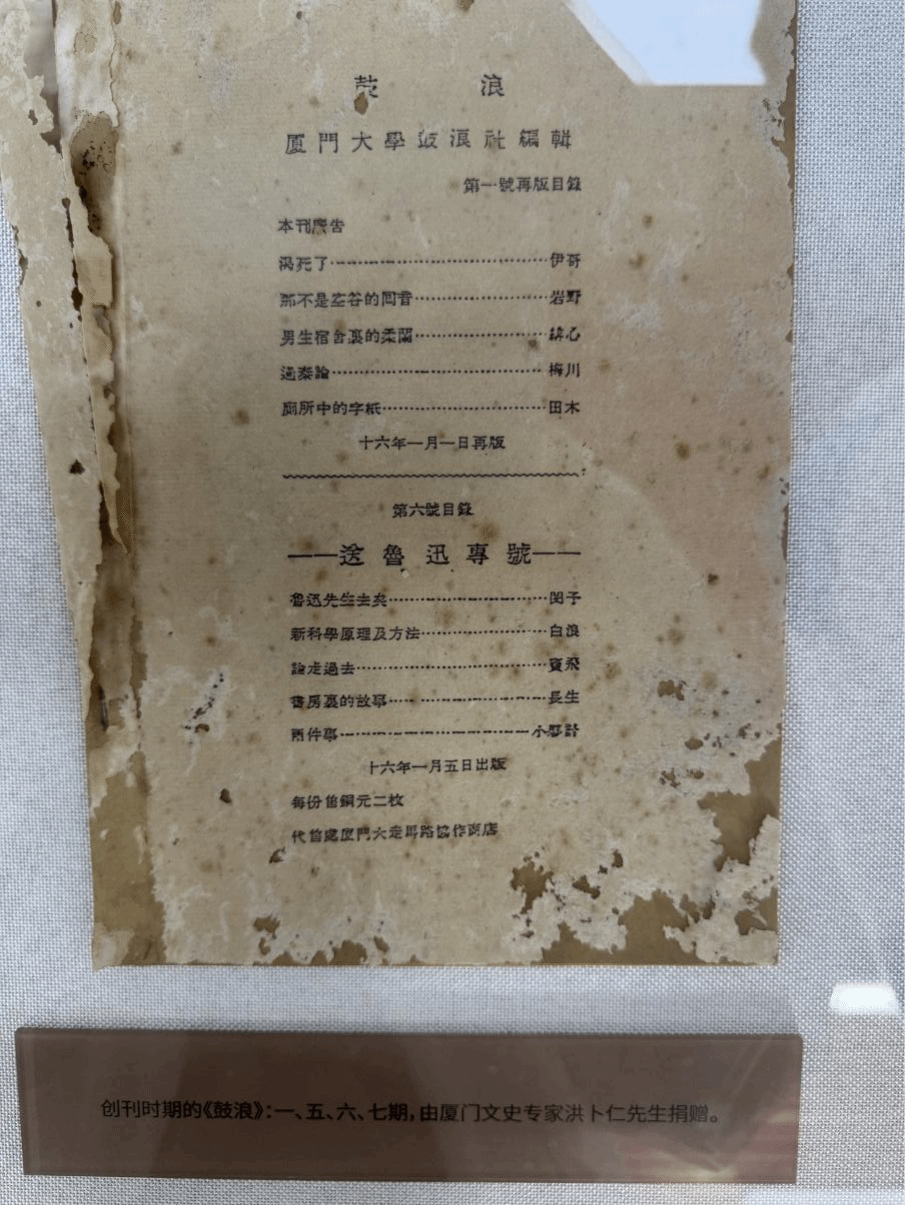 鼓 浪
厦門大學鼓浪社編輯
第一號再版目錄
本刊廣告
渴死了……伊哥
那不是空谷的回音……岩野
男生宿舍裏的柔蘭……緋心
過秦論……梅川
廁所中的字紙……田木
十六年一月一日再版
第六號目錄
——送魯迅專號——
魯迅先生去矣……閔予
新科學原理及方法……白浪
論走過去……寶飛
書房裏的故事……長生
兩件事……小夥計
十六年一月五日出版
每份售銅元二枚
代售處厦門大走馬路協作商店
创刊时期的《鼓浪》：一、五、六、七期，由厦门文史专家洪卜仁先生捐赠。